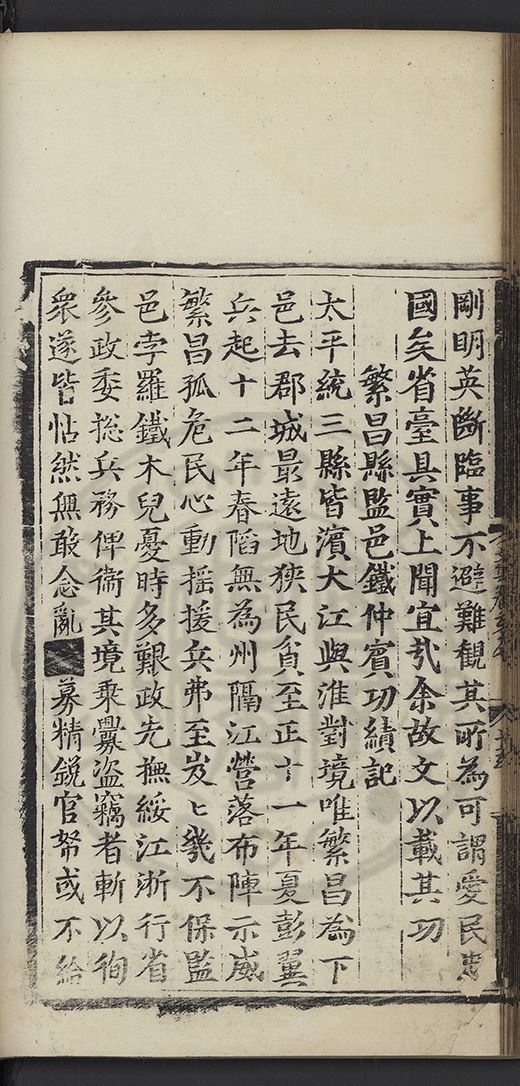 剛明英斷臨事不避難観其所為可謂愛民忠
國矣省臺具實上聞宜㢤余故文以載其功
繁昌縣監邑鐵仲賓功績記
太平統三縣皆濵大江與淮對境唯繁昌為下
邑去郡城最遠地狹民貧至正十一年夏彭翼
兵起十二年春陷無為州隔江營落布陣示威
繁昌孤危民心動揺援兵弗至岌ヒ㡬不保監
邑孛羅鐵木兒憂時多艱政先撫綏江浙行省
參政委捴兵務俾衞其境乘釁盗竊者斬以徇
衆遂皆怗然無敢念亂 募精鋭官帑或不給